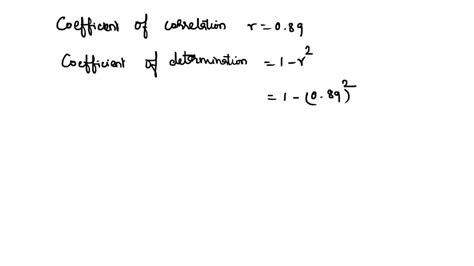 Coefficient of correlation r = 0.89
Coefficient of determination = 1 - r²
= 1 - (0.89)²